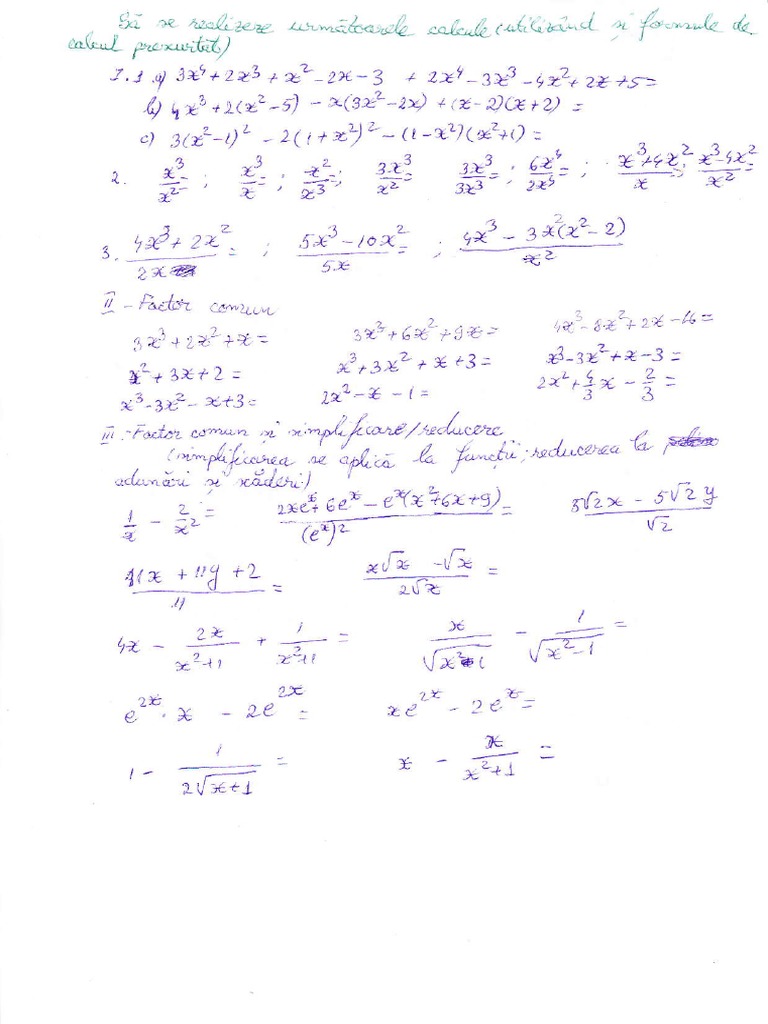 Să se realizeze următoarele calcule (utilizând și formule de
calcul prescurtat)
I. 1 a) 3x⁴+2x³+x²-2x-3 + 2x⁴-3x³-4x²+2x+5=
b) 4x³+2(x²-5) - x(3x²-2x) + (x-2)(x+2) =
c) 3(x²-1)² - 2(1+x²)² - (1-x²)(x²+1) =
2. x³/x² = ; x³/x = ; x²/x³ = ; 3x³/x² = 3x³/3x³ ; 6x⁴/2x⁴ = ; (x³+4x²)/x = ; (x³-4x²)/x² =
3. (4x³+2x²)/2x = ; (5x³-10x²)/5x = ; (4x³-3x²(x²-2))/x²
II - Factor comun
3x³+2x²+x= 3x³+6x²+9x= 4x³-8x²+2x-16=
x²+3x+2= x³+3x²+x+3= x³-3x²+x-3=
x³-3x²-x+3= 2x²-x-1= 2x²+4/3x-2/3=
III - Factor comun și simplificare/reducere
(simplificarea se aplică la funcții; reducerea la
adunări și scăderi)
1/x - 2/x² = (2xeˣ+6eˣ-eˣ(x²+6x+9))/(eˣ)² = (3√2x - 5√2y)/√2
(11x+11y+2)/11 = (x√x-√x)/2√x =
4x - 2x/(x²+1) + 1/(x²+1) = x/√(x²-1) - 1/√(x²-1) =
e²ˣ·x - 2e²ˣ = xe²ˣ - 2eˣ=
1 - 1/(2√(x+1)) = x - x/(x²+1) =